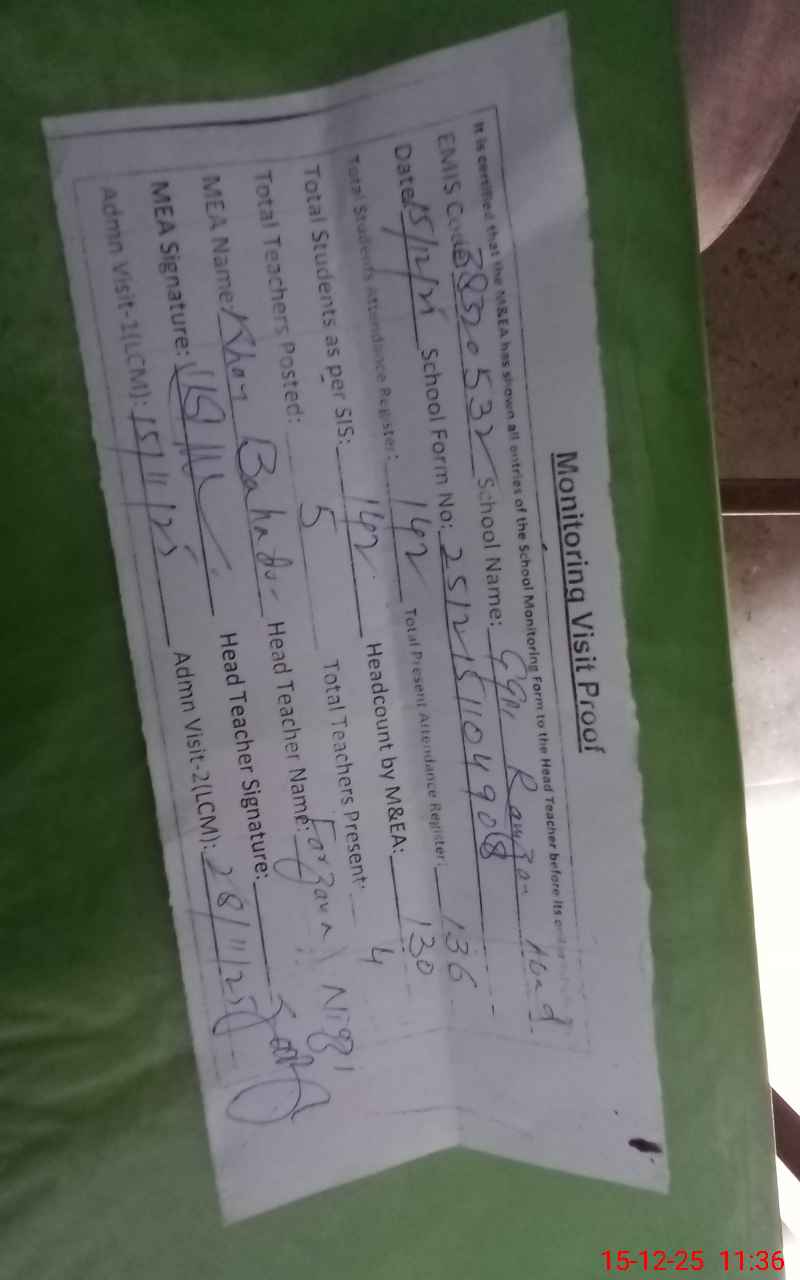 Monitoring Visit Proof
It is certified that the M&EA has shown all entries of the School Monitoring Form to the Head Teacher before its
EMIS Code: 38320532 School Name: Ramzan Abad
Date: 15/12/25 School Form No: 2512151104908
Total Students Attendance Register: 142 Total Present Attendance Register: 136
Total Students as per SIS: 142 Headcount by M&EA: 130
Total Teachers Posted: 5 Total Teachers Present: 4
MEA Name: Khan Bahadur Head Teacher Name: Farzana
MEA Signature: Head Teacher Signature:
Admn Visit-1(LCM): 15/11/25 Admn Visit-2(LCM): 28/11/25
15-12-25 11:36